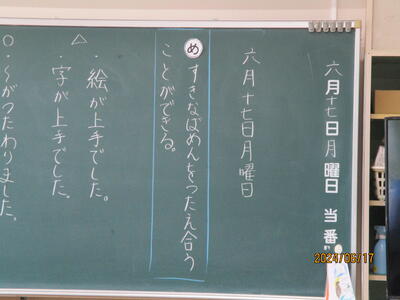 六月十七日月曜日 当番
六月十七日月曜日
め すきなばめんをつたえ合う
ことができる。
△
・絵が上手でした。
・字が上手でした。
○
・〜がつたわりました。
2024/06/17